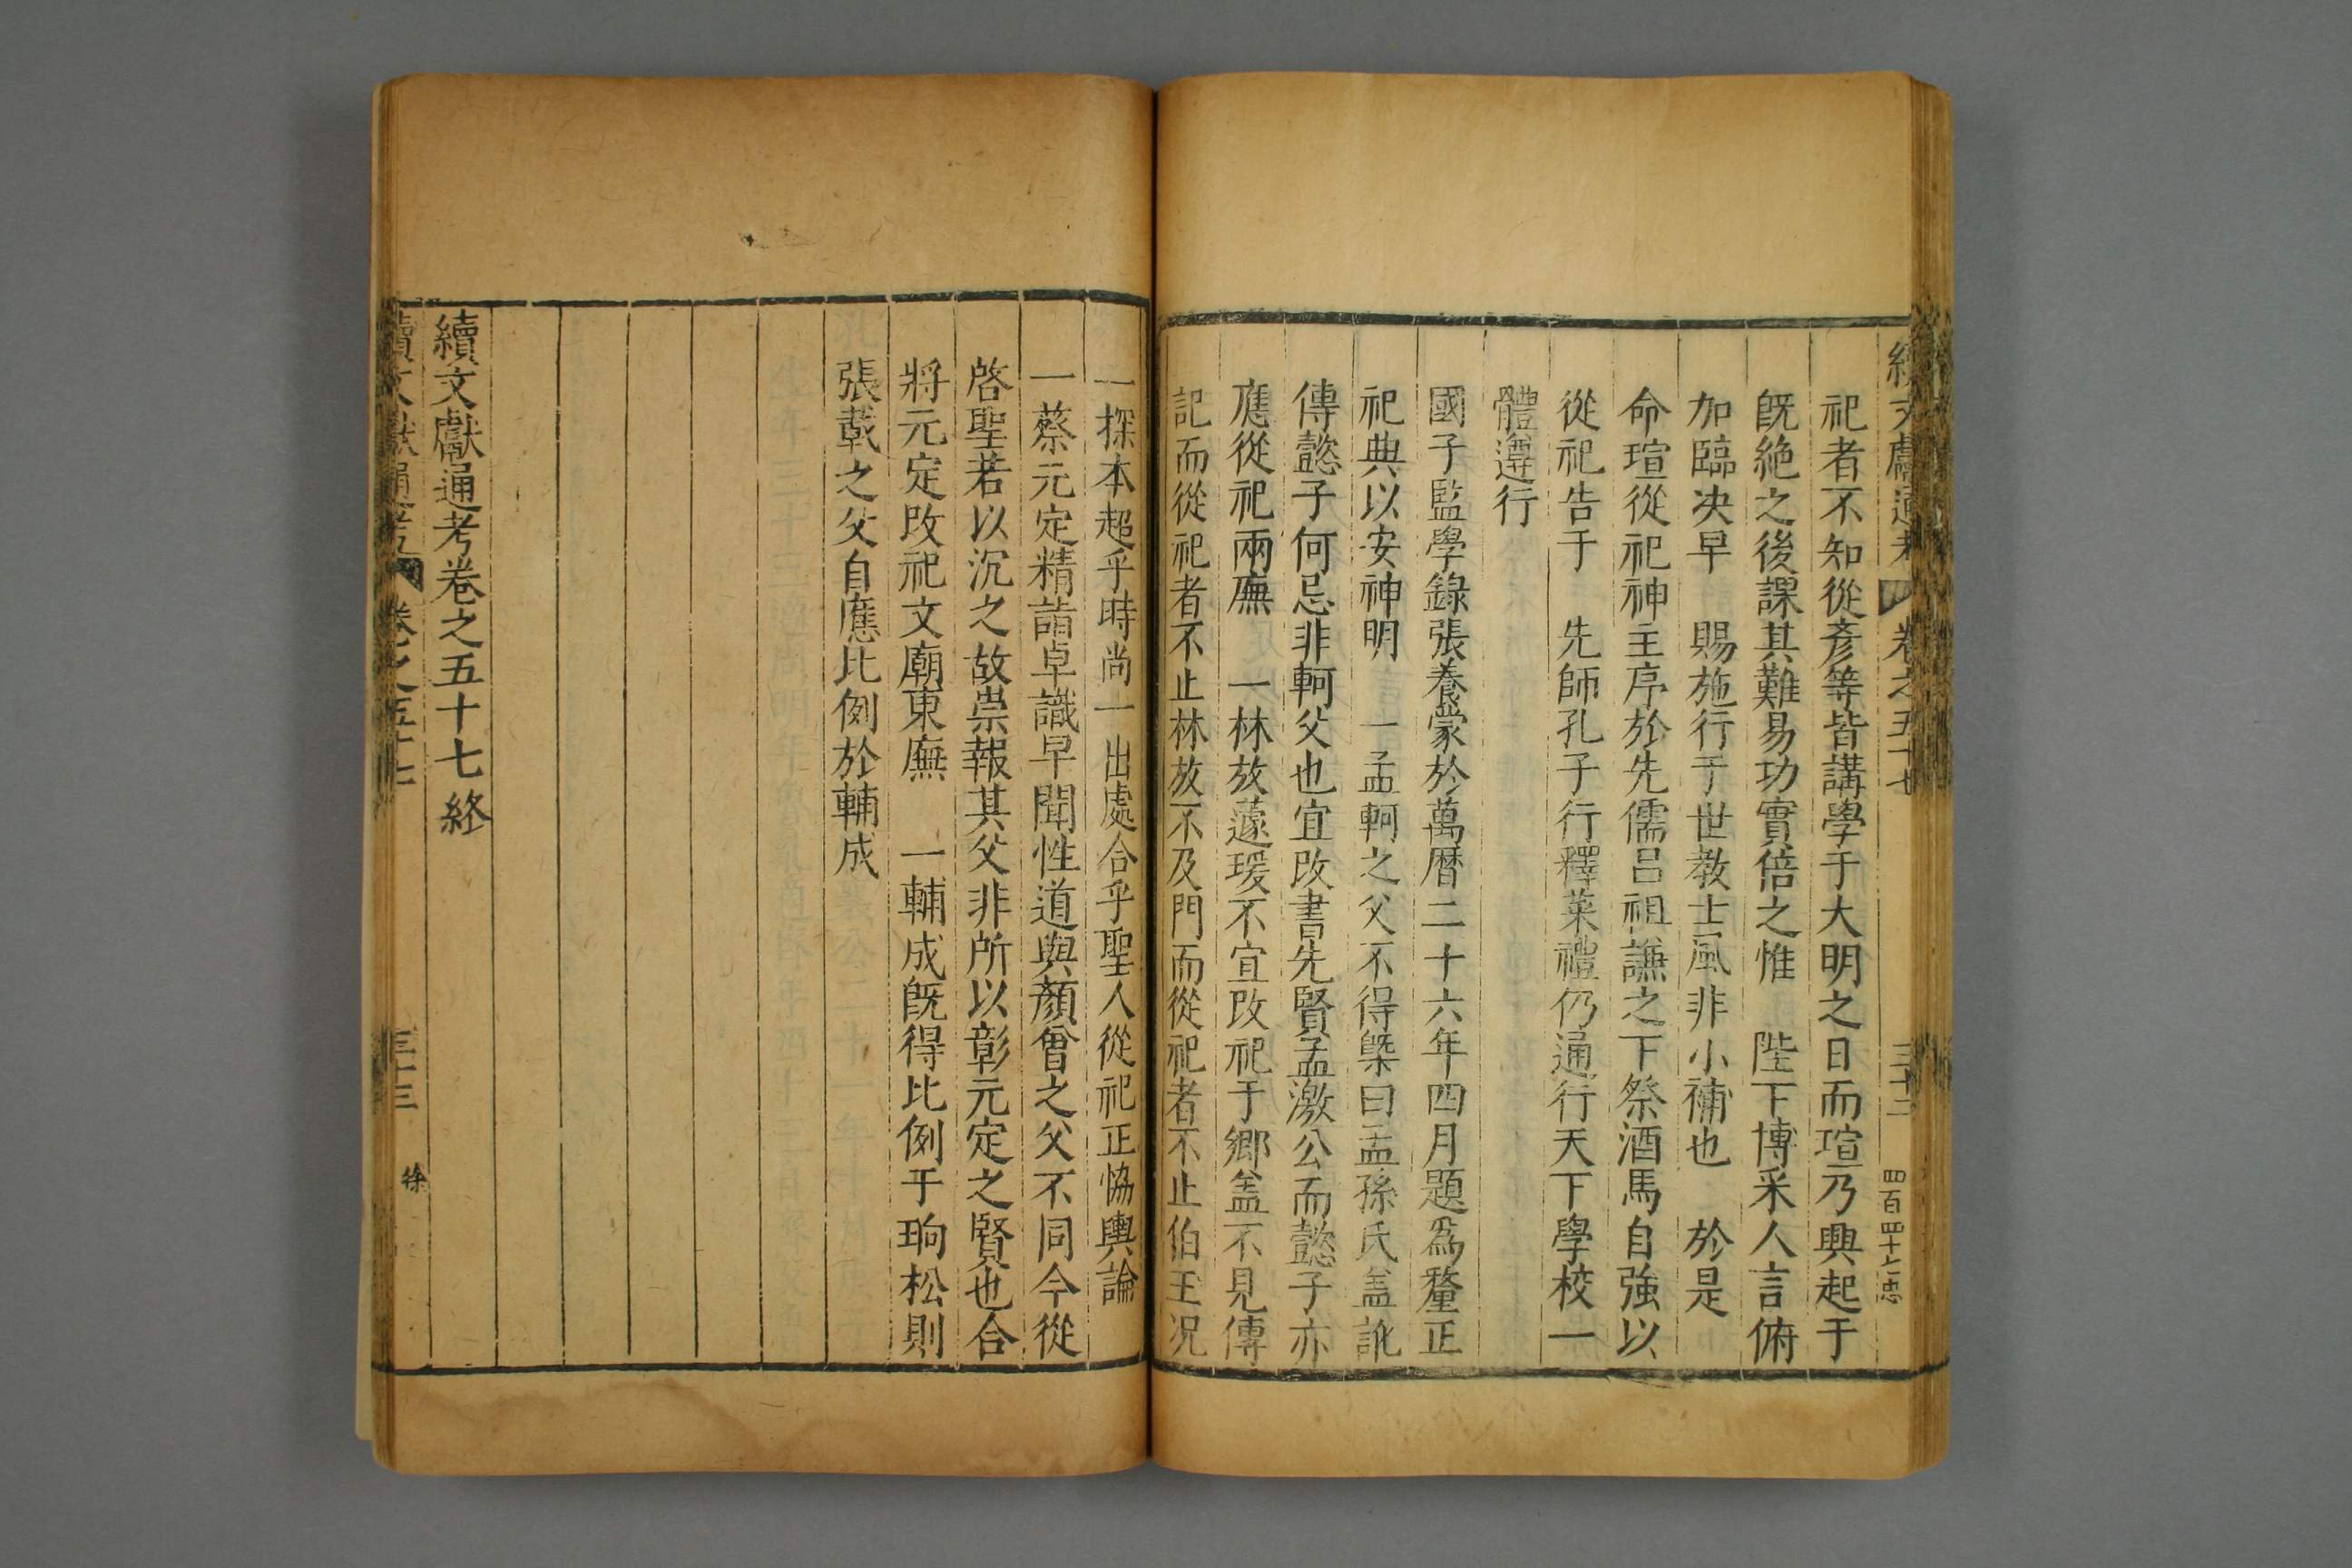 續文獻通考 卷之五十七 三十二 四百四十七 忠
祀者不知從彥等皆講學于大明之日而瑄乃興起于
旣絶之後課其難易功實倍之惟 陛下博采人言俯
加臨决早 賜施行于世教士風非小補也 於是
命瑄從祀神主序於先儒吕祖謙之下祭酒馬自強以
從祀告于 先師孔子行釋菜禮仍通行天下學校一
體遵行
國子監學錄張養蒙於萬曆二十六年四月題爲釐正
祀典以安神明 一孟軻之父不得槩曰孟孫氏盖訛
傳懿子何忌非軻父也宜改書先賢孟激公而懿子亦
應從祀兩廡 一林放蘧瑗不宜改祀于鄉盖不見傳
記而從祀者不止林放不及門而從祀者不止伯玉况
一探本超乎時尚一出處合乎聖人從祀正恊輿論
一蔡元定精詣卓識早聞性道與顏曾之父不同今從
啓聖若以沉之故崇報其父非所以彰元定之賢也合
將元定改祀文廟東廡 一輔成旣得比例于珦松則
張載之父自應比例於輔成
續文獻通考卷之五十七終
續文獻通考 卷之五十七 三十三 徐